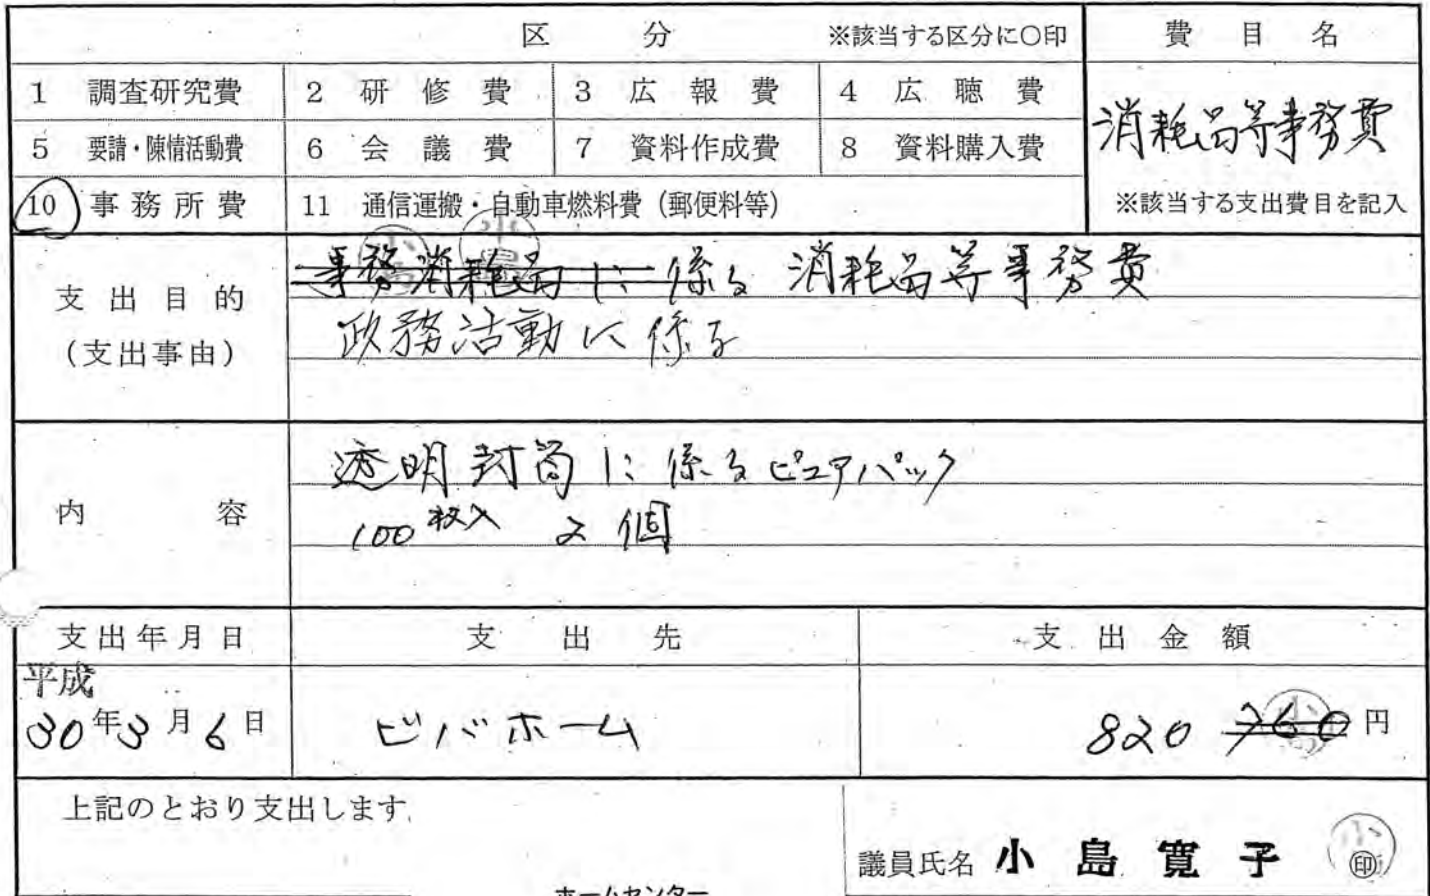 区 分 ※該当する区分に○印 費 目 名
1 調査研究費 2 研 修 費 3 広 報 費 4 広 聴 費
消耗品等事務費
5 要請・陳情活動費 6 会 議 費 7 資料作成費 8 資料購入費
10 事 務 所 費 11 通信運搬・自動車燃料費（郵便料等） ※該当する支出費目を記入
事務消耗品に係る 消耗品等事務費
支 出 目 的
政務活動に係る
（支出事由）
透明封筒に係るピュアパック
内 容
100枚入 2個
支出年月日 支 出 先 支 出 金 額
平成
30年3月6日 ビバホーム 820 760 円
上記のとおり支出します
議員氏名 小 島 寛 子 印
ホームセンター